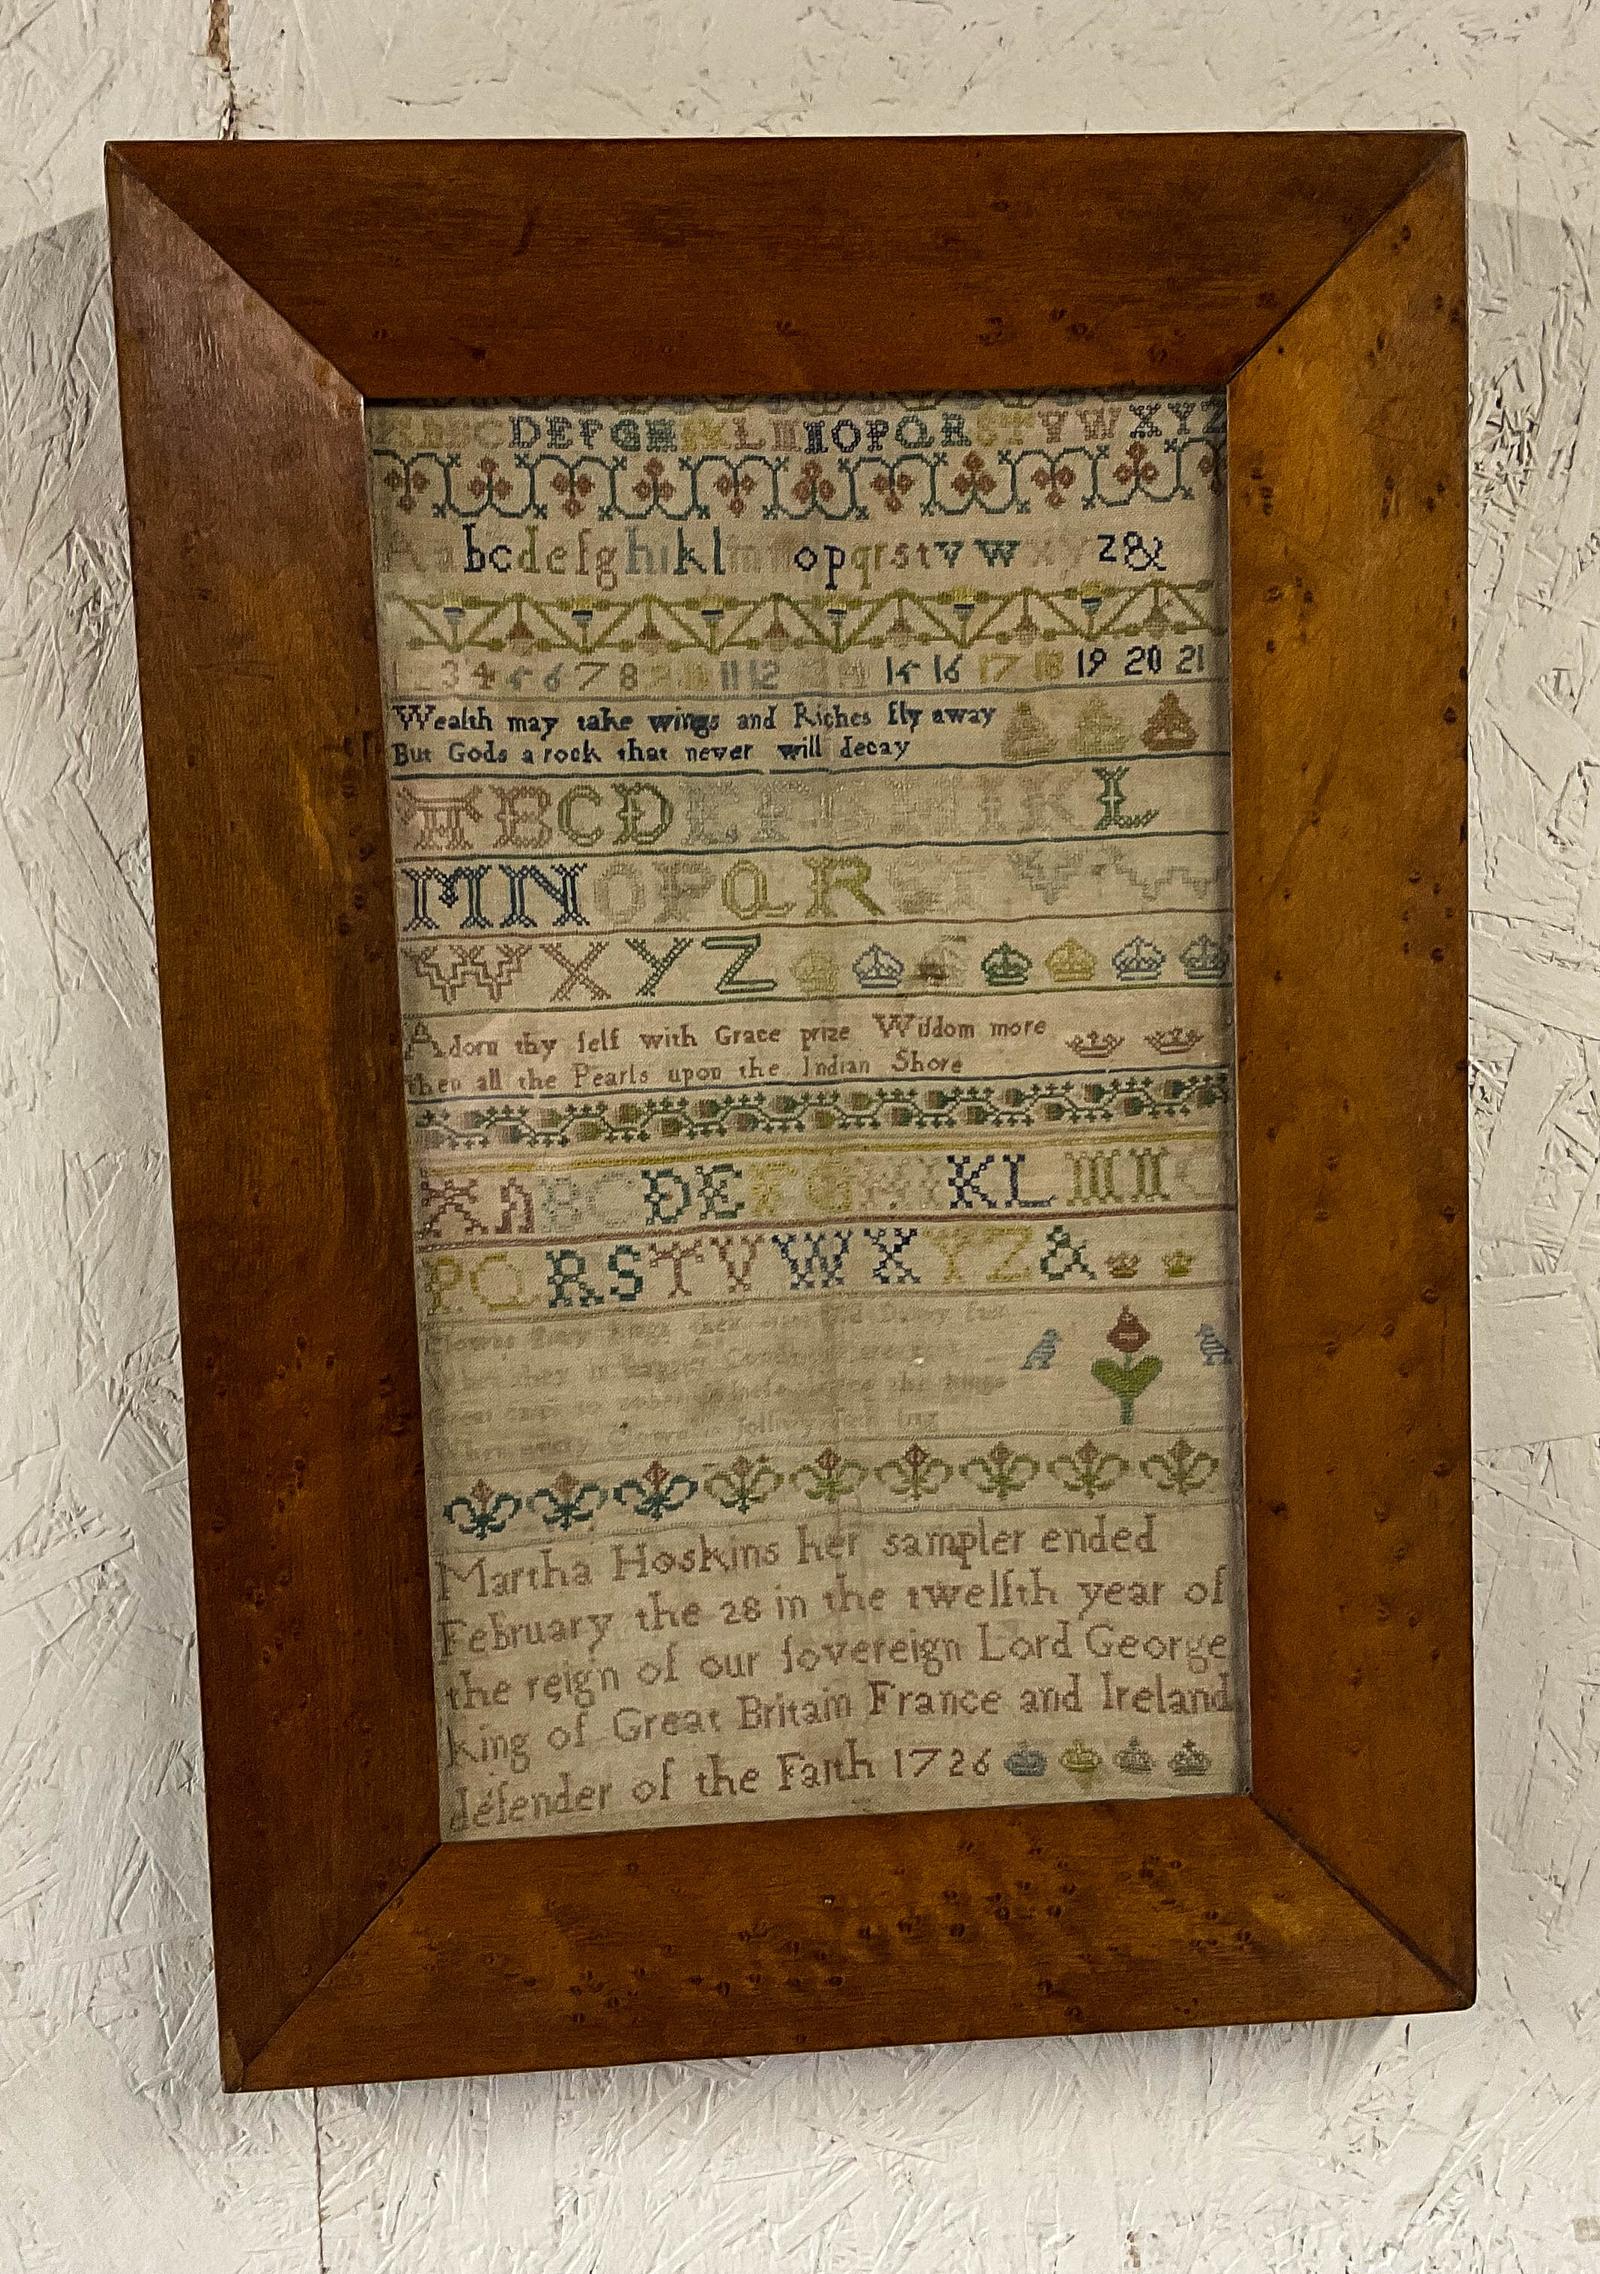 A B C D E F G H I K L M N O P Q R S T V W X Y Z
A a b c d e f g h i k l m n o p q r s t v w x y z &
1 2 3 4 5 6 7 8 9 10 11 12 13 14 15 16 17 18 19 20 21
Wealth may take wings and Riches fly away
But Gods a rock that never will decay
A B C D E F G H I K L
M N O P Q R S T V
W X Y Z
Adorn thy ſelf with Grace prize Wiſdom more
then all the Pearls upon the Indian Shore
A B C D E F G H I K L M N O
P Q R S T V W X Y Z &
kings
they in
the kings
When every
Martha Hoskins her sampler ended
February the 28 in the twelfth year of
the reign of our ſovereign Lord George
king of Great Britain France and Ireland
defender of the Faith 1726